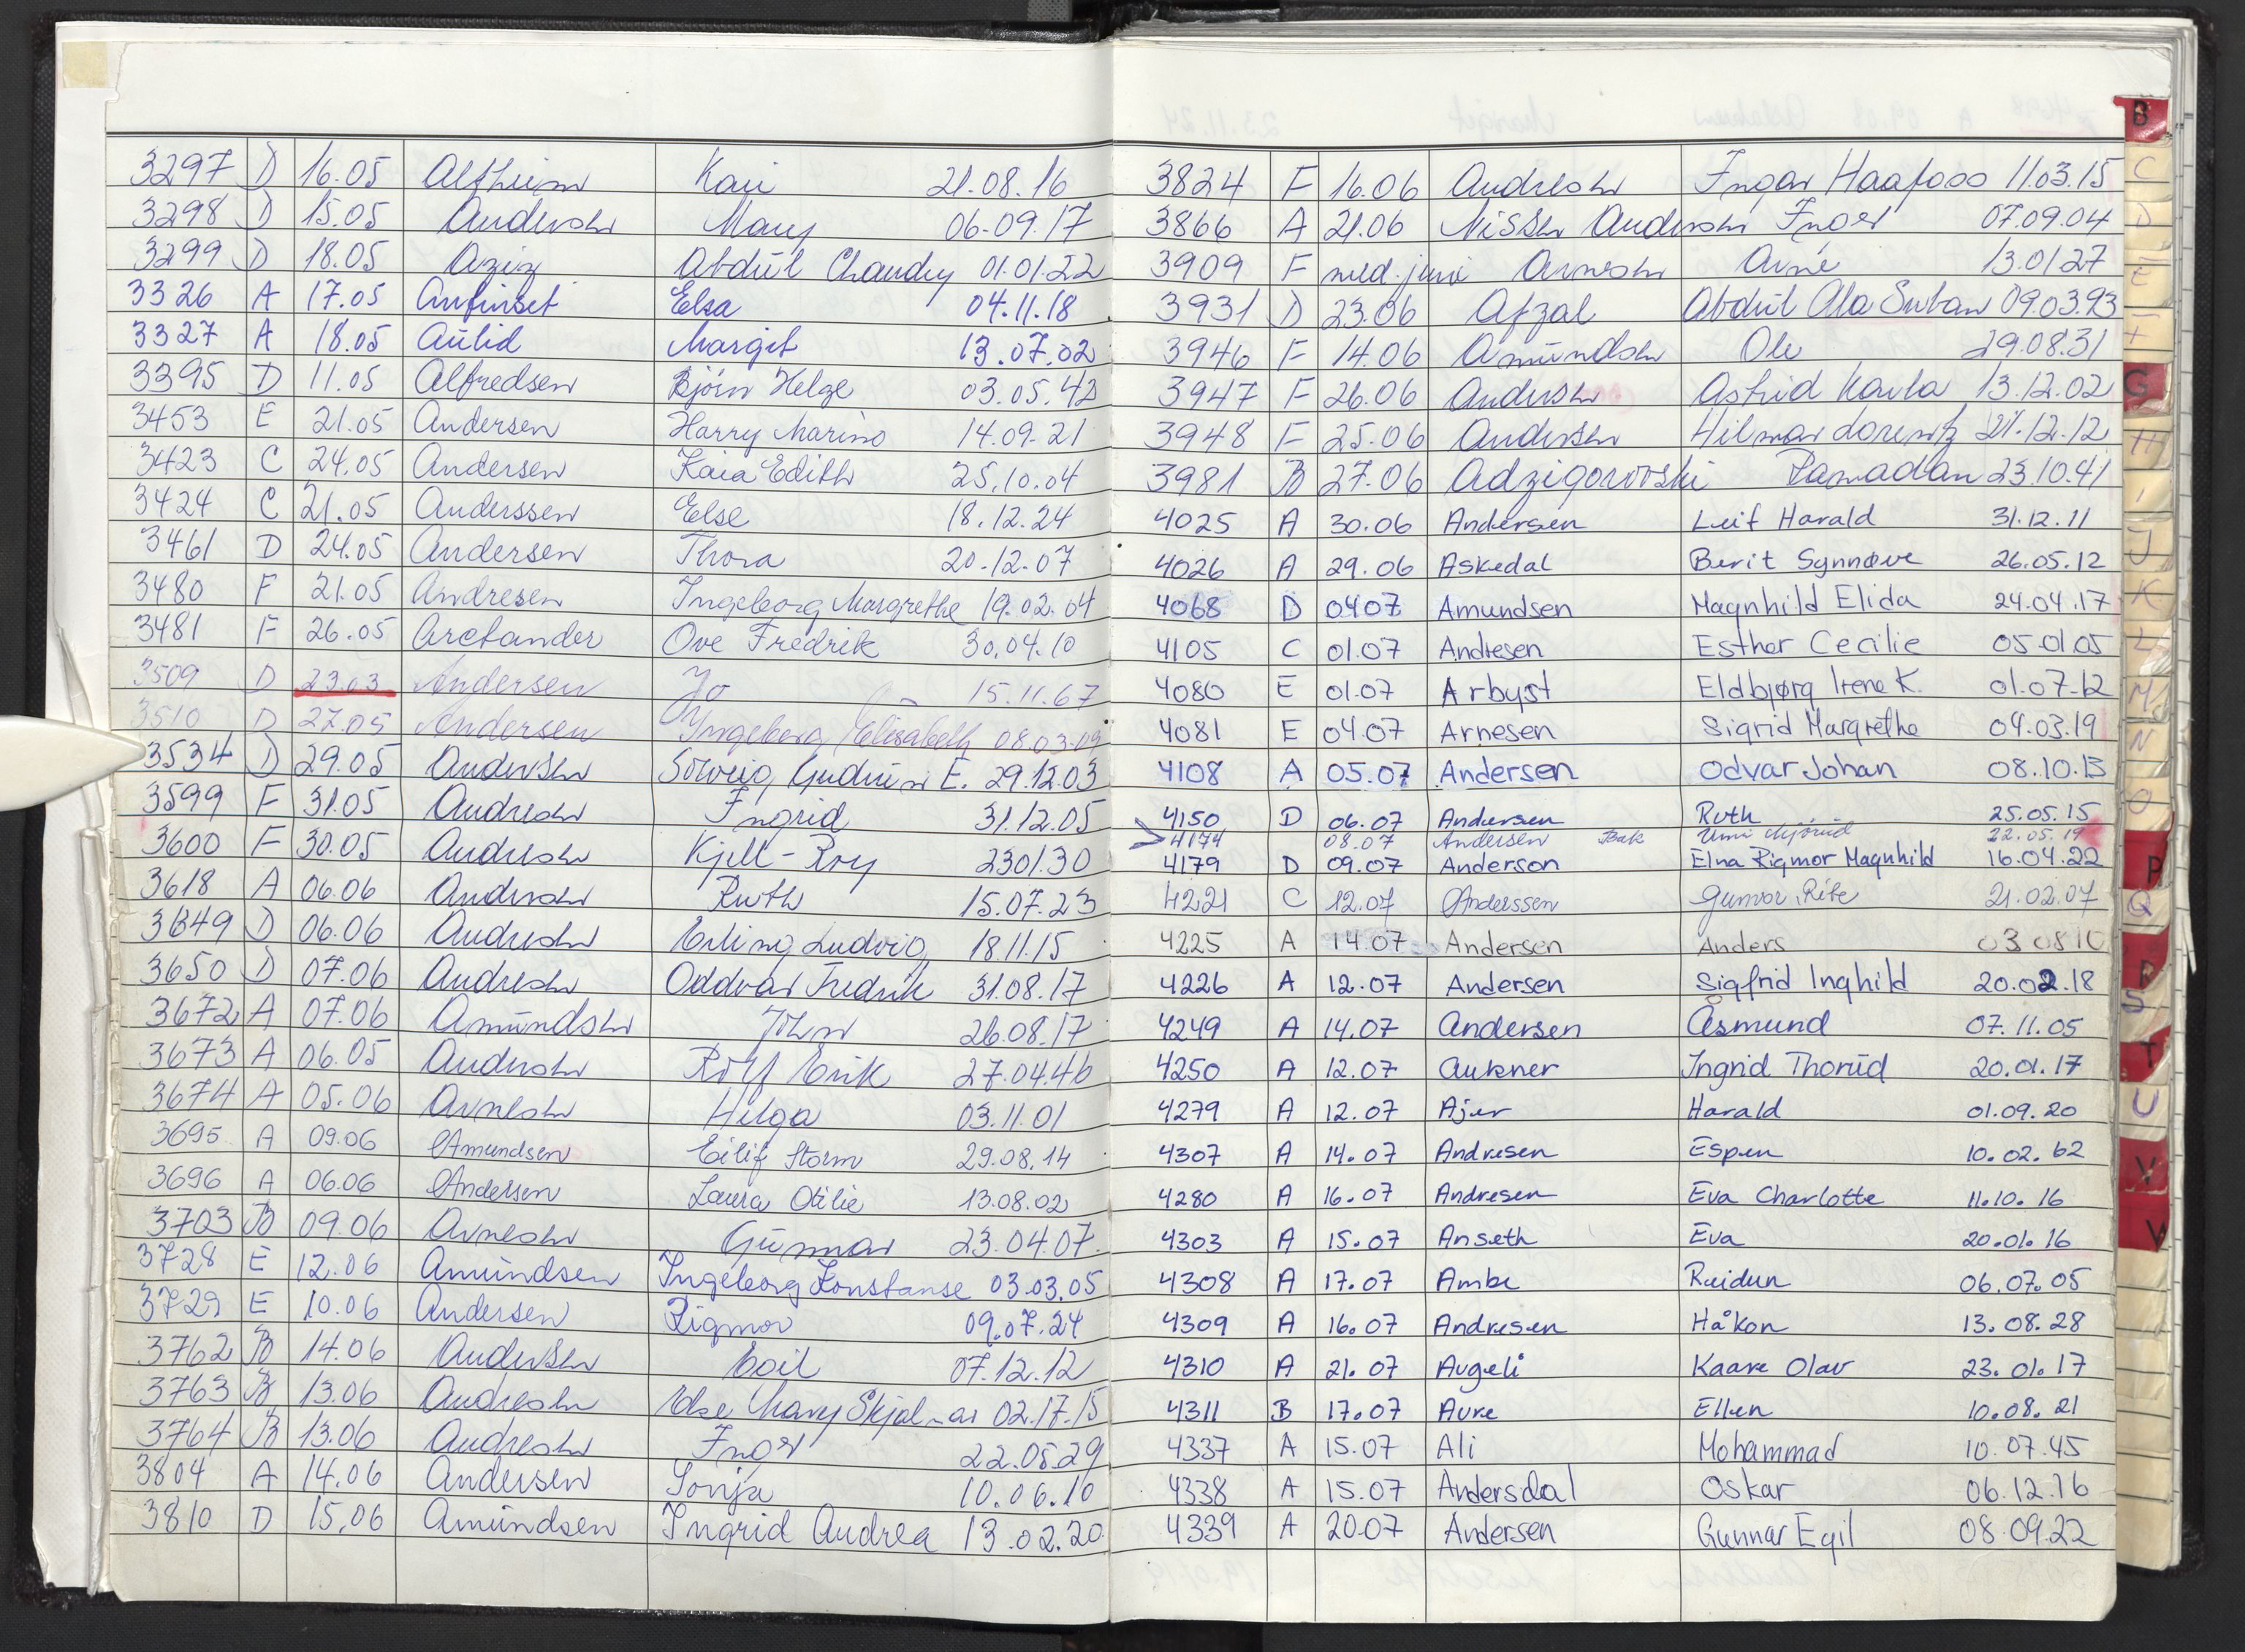 3297 D 16.05 Alfheim Kari 21.08.16
3298 D 15.05 Andersen Mary 06.09.17
3299 D 18.05 Aziz Abdul Chaudry 01.01.22
3326 A 17.05 Anfinset Elsa 04.11.18
3327 A 18.05 Aulid Margit 13.07.02
3395 D 11.05 Alfredsen Bjørn Helge 03.05.42
3453 E 21.05 Andersen Harry Marino 14.09.21
3423 C 24.05 Andersen Kaia Edith 25.10.04
3424 C 21.05 Anderssen Else 18.12.24
3461 D 24.05 Andersen Thora 20.12.07
3480 F 21.05 Andresen Ingeborg Margrethe 19.02.04
3481 F 26.05 Arctander Ove Fredrik 30.04.10
3509 D 23.03 Andersen Jo 15.11.67
3510 D 27.05 Andersen Ingeborg Elisabeth 08.03.09
3534 D 29.05 Andersen Solveig Gudrun E. 29.12.03
3599 F 31.05 Andresen Ingrid 31.12.05
3600 F 30.05 Andresen Kjell-Roy 230130
3618 A 06.06 Andersen Ruth 15.07.23
3649 D 06.06 Andresen Erling Ludvig 18.11.15
3650 D 07.06 Andresen Oddvar Fredrik 31.08.17
3672 A 07.06 Amundsen John 26.08.17
3673 A 06.05 Andersen Rolf Erik 27.04.46
3674 A 05.06 Arnesen Helga 03.11.01
3695 A 09.06 Amundsen Eilif Storm 29.08.14
3696 A 06.06 Andersen Laura Otilie 13.08.02
3703 B 09.06 Arnesen Gunnar 23.04.07.
3728 E 12.06 Amundsen Ingeborg Konstanse 03.03.05
3729 E 10.06 Andersen Rigmor 09.07.24
3762 B 14.06 Andersen Egil 07.12.12
3763 B 13.06 Andresen Else Mary 02.17.15
3764 B 13.06 Andresen Inger 22.05.29
3804 A 14.06 Andersen Sonja 10.06.10
3810 D 15.06 Amundsen Ingrid Andrea 13.02.20
3824 F 16.06 Andresen Ingar Haafoss 11.03.15
3866 A 21.06 Nissen Andersen Inger 07.09.04
3909 F med. juni Arnesen Arne 13.01.27
3931 D 23.06 Afzal Abdul Ala Suban 09.03.93
3946 F 14.06 Amundsen Ole 29.08.31
3947 F 26.06 Andersen Astrid Karla 13.12.02
3948 F 25.06 Andersen Hilmar Lorentz 21.12.12
3981 B 27.06 Adzigorovski Ramadan 23.10.41
4025 A 30.06 Andersen Leif Harald 31.12.11
4026 A 29.06 Askedal Berit Synnøve 26.05.12
4068 D 04.07 Amundsen Magnhild Elida 24.04.17
4105 C 01.07 Andresen Esther Cecilie 05.01.05
4080 E 01.07 Arbyst Eldbjørg Irene K. 01.07.12
4081 E 04.07 Arnesen Sigrid Margrethe 04.03.19
4108 A 05.07 Andersen Odvar Johan 08.10.13
4150 D 06.07 Andersen Ruth 25.05.15
4174 08.07 Andersen Bak Unni 22.05.19
4179 D 09.07 Anderson Elna Rigmor Magnhild 16.04.22
4221 C 12.07 Anderssen Gunvor Rite 21.02.07
4225 A 14.07 Andersen Anders 03 08 10
4226 A 12.07 Andersen Sigfrid Inghild 20.02.18
4249 A 14.07 Andersen Åsmund 07.11.05
4250 A 12.07 Aukner Ingrid Thorud 20.01.17
4279 A 12.07 Ajer Harald 01.09.20
4307 A 14.07 Andresen Espen 10.02.62
4280 A 16.07 Andresen Eva Charlotte 11.10.16
4303 A 15.07 Anseth Eva 20.01.16
4308 A 17.07 Ambe Reidun 06.07.05
4309 A 16.07 Andresen Håkon 13.08.28
4310 A 21.07 Augeli Kaare Olav 23.01.17
4311 B 17.07 Aure Ellen 10.08.21
4337 A 15.07 Ali Mohammad 10.07.45
4338 A 15.07 Andersdal Oskar 06.12.16
4339 A 20.07 Andersen Gunnar Egil 08.09.22
B
C
D
E
F
G
H
I
J
K
L
M
N
O
P
Q
R
S
T
U
V
W